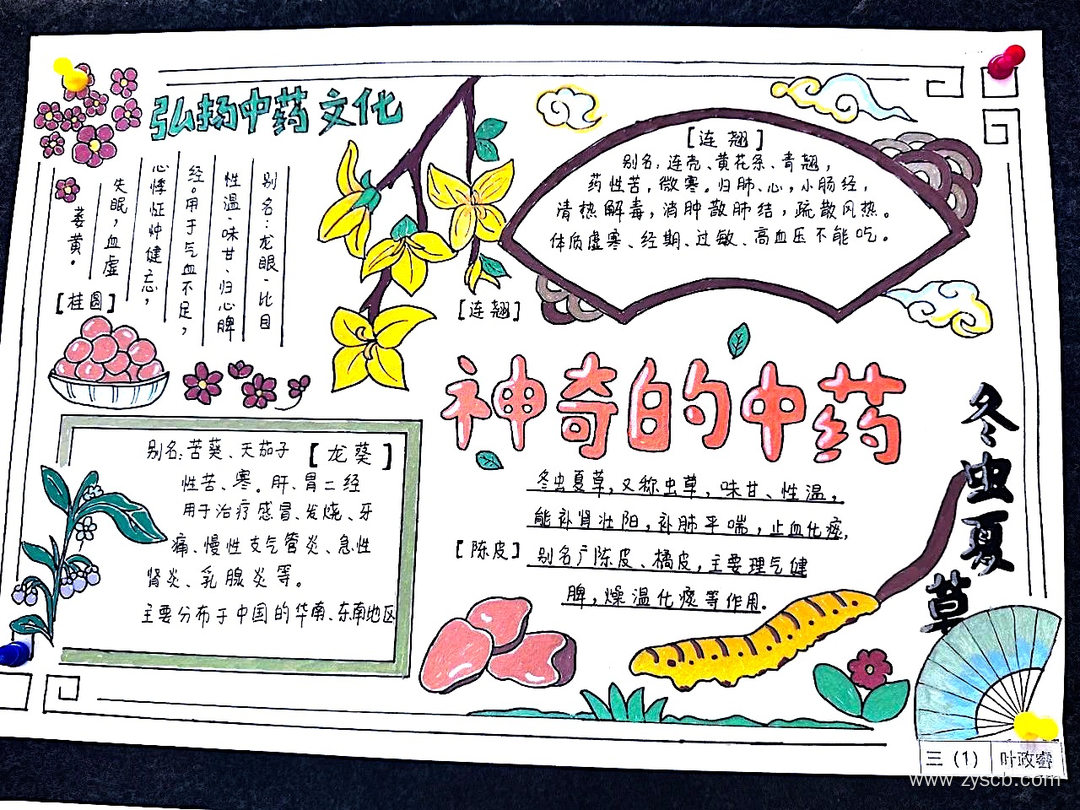 弘扬中药文化
别名:龙眼、比目
性温、味甘、归心脾
经。用于气血不足,
心悸怔忡健忘,
失眠,血虚
萎黄。
[桂圆]
[连翘]
[连翘]
别名:连壳、黄花条、青翘,
药性苦,微寒。归肺、心,小肠经,
清热解毒,消肿散肺结,疏散风热。
体质虚寒、经期、过敏、高血压不能吃。
神奇的中药
别名:苦葵、天茄子 [龙葵]
性苦、寒。肝、胃二经
用于治疗感冒、发烧、牙
痛、慢性支气管炎、急性
肾炎、乳腺炎等。
主要分布于中国的华南、东南地区
冬虫夏草,又称虫草,味甘、性温,
能补肾壮阳,补肺平喘,止血化痰,
[陈皮] 别名广陈皮、橘皮,主要理气健
脾,燥温化痰等作用.
冬虫夏草
三(1) 叶政睿
www.zyscb.com